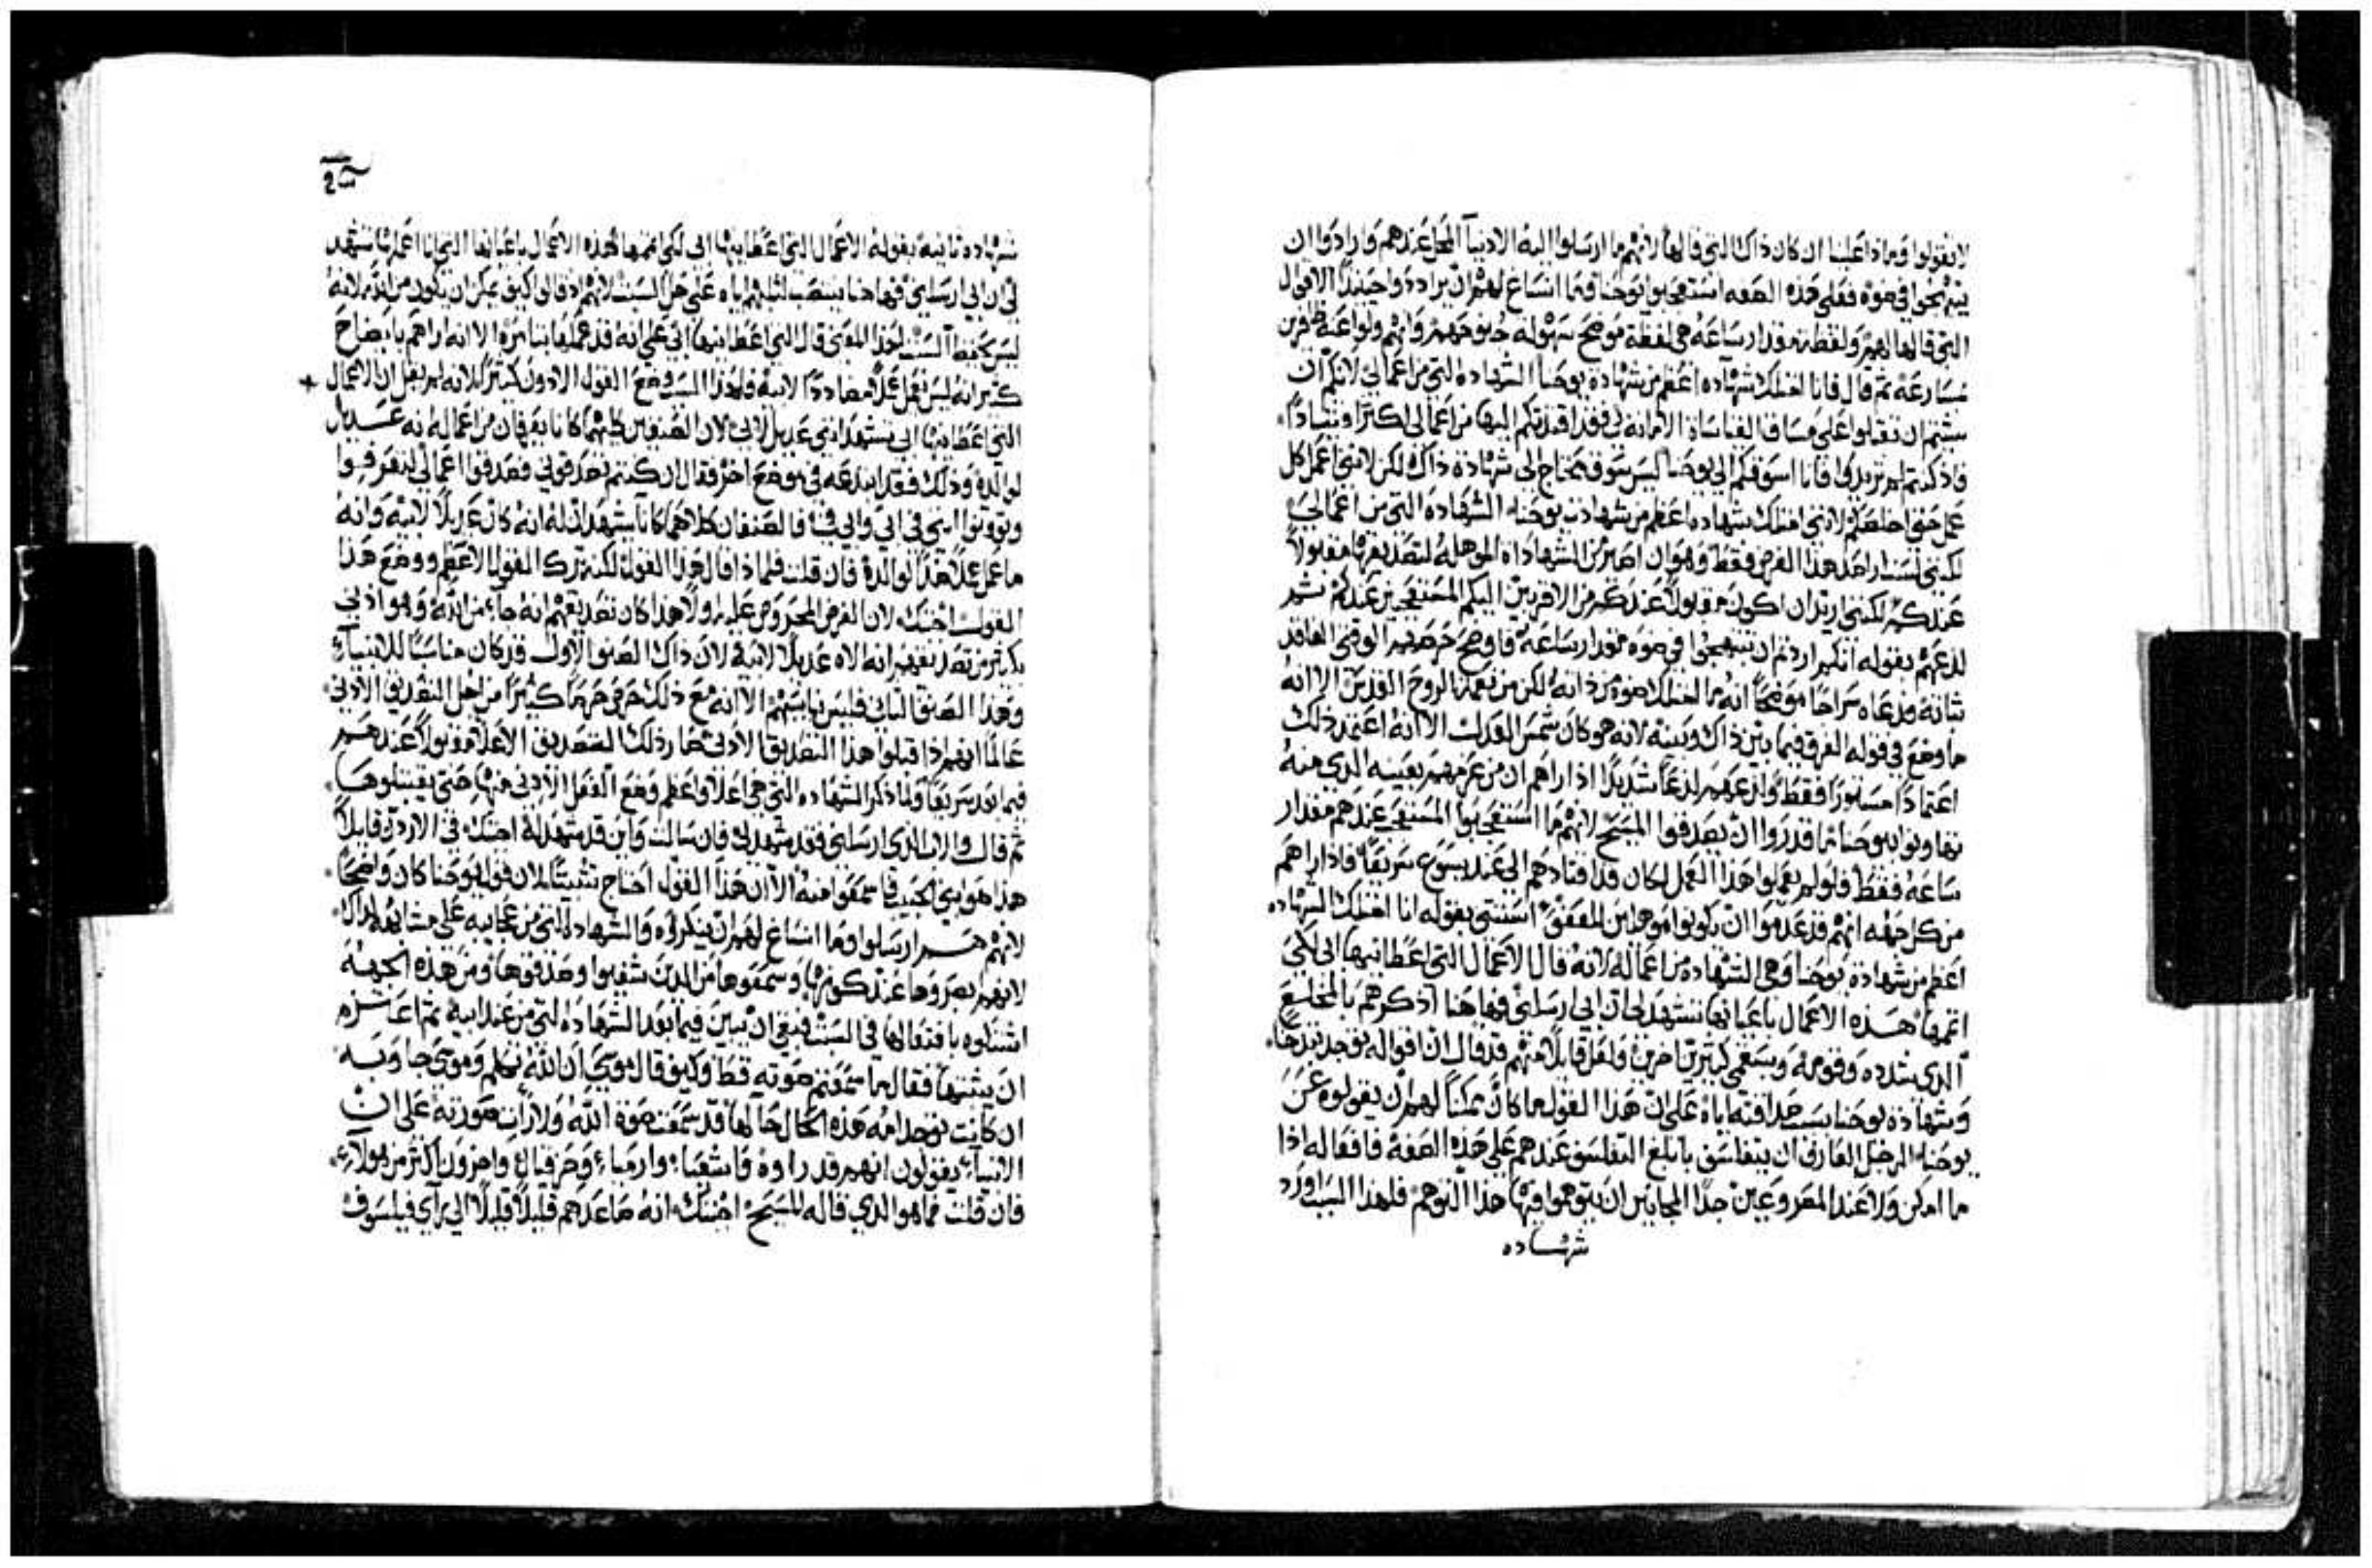 لا يقولوا وماذا علينا ان كان ذاك التي قالها لانهم ما ارسلوا اليه الادنيا المحل عندهم وارادوا ان
يبتهجوا في ضوه فعلى هذه الصفه استعجبوا يوحنا وما انساغ لهم ان يرادوا حينئذ الاقوال
التي قالها لهم ولفظة مقدار ساعه هي لفظة موضح سهوله
مسارعة ثم قال فانا امتلك شهاده اعظم من شهادة يوحنا الشهاده التي من اعمالي لانكم ان
شيتم ان تقبلوا على مساق القياسات الامانه لي فقد اقتدتكم اليها من اعمالي اكثر اقتيادا
فاذ كنتم لم تريدوا فانا اسوقكم الى يوحنا ليس سوف يحتاج الى شهادة ذاك لكن لانني اعمل كل
عمل حتى اخلصكم لانني امتلك شهاده اعظم من شهادت يوحنا الشهاده التي من اعمالي
لكنني لست اراحل هذا الغرض فقط وهو ان اصير من الشهادات الموهله لتصديقها مقبولا
عندكم لكنني اريد ان اكون مقبولا عندكم من الاقربين اليكم عندكم ثم
لذعهم بقوله انكم اردتم ان تبتهجوا في ضوه مقدار ساعة فاوضح حرصهم الوقتي الفاقد
ثباته ودعاه سراجا موضحا انه ما امتلك ضوه من ذاته لكن من نعمة الروح القدس الا انه
ما وضع في قوله الفرق فيما بين ذاك وبينه لانه هو كان شمس العدل الا انه اعتمد ذلك
اعتمادا مستورا فقط ولذعهم لذعا شديدا اذ اراهم ان من عزمهم بعينه الذي منه
تهاونوا بيوحنا ما قدروا ان يصدقوا المسيح لانهم ما عندهم مقدار
ساعة فقط فلو لم يعملوا هذا العمل لكان قد اقتادهم الى عند يسوع سريعا فاذ اراهم
من كل جهه انهم قد عدموا ان يكونوا موهلين للعفو استثنى بقوله انا امتلك الشهاده
اعظم من شهادة يوحنا وهي الشهاده من اعماله لانه قال الاعمال التي اعطانيها ابي لكي
اتمها هذه الاعمال باعيانها تشهد لي ان ابي ارسلني فها هنا اذكرهم بالمخلع
الذي شدده وقومه وبسقمى كثيرين اخرين ولعل قايلا منهم قد قال ان اقواله توجد تبذخا
وشهادة يوحنا بسبب صداقته اياه على ان هذا القول ما كان ممكنا لهم ان يقولوه عن
يوحنا الرجل العارف ان يتفلسف بابلغ التفلسف عندهم على هذه الصفة فافعاله اذا
ما امكن ولا عند المصروعين جدا المجانين ان يتوهموا فيها هذا التوهم فلهذا السبب اورد
شهاده
شهاده ثانيه بقوله الاعمال التي اعطانيها ابي لكي اتمها هذه الاعمال باعيانها التي انا اعملها تشهد
لي ان ابي ارسلني فها هنا ينتصب لثلبهم اياه على حل السبت لانهم اذ قالوا كيف يمكن ان يكون من الله لانه
ليس يحفظ السبت لهذا المعنى قال التي اعطانيها ابي على انه قد عملها بتامره الا انه اراهم بايضاح
كثير انه ليس يعمل عملا مضاددا لابيه فلهذا السبب وضع القول الادون كثيرا لانه لم يقل ان الاعمال
التي اعطانيها ابي تشهد انني عديل لابي لان الصنفين كليهما كانا يعرفان من اعماله انه عديل
لوالده وذلك فقد ابدعه في موضع اخر فقال ان كنتم تصدقوني فصدقوا اعمالي لتعرفوا
وتوقنوا انني في ابي وابي في فالصنفان كلاهما كانا يشهدان له انه كان عديلا لابيه وانه
ما عمل عملا ضدا لوالده فان قلت فلماذا قال هذا القول لكنه ترك القول الاعظم ووضع هذا
القول اجبتك لان الغرض المحروص عليه اولا هذا كان تصديقهم انه جاء من الله وهو ادنى
بكثير من تصديقهم انه الاه عديلا لابيه لان ذاك الصنف الاول قد كان مناسبا للانبياء
وهذا الصنف الثاني فليس يناسبهم الا انه مع ذلك حرص حرصا كثيرا من اجل التصديق الادنى
عالما انهم اذا قبلوا هذا التصديق الادنى صار ذلك التصديق الاعلا مقبولا عندهم
فيما بعد سريعا ولما ذكر الشهاده التي هي اعلا واعظم وضع الفعل الادنى منها حتى يقتبلوها
ثم قال والاب الذي ارسلني فقد شهد لي فان سالت واين قد شهد له اجبتك في الاردن قايلا
هذا هو ابني الحبيب فاسمعوا منه الا ان هذا القول احتاج تثبيتا لان قول يوحنا كان واضحا
لانهم هم ارسلوا وما انساغ لهم ان ينكروه والشهاده التي من عجايبه على مشابهة لذاك
لانهم ابصروها عند كونها وسمعوها من الذين شفيوا وصدقوها ومن هذه الجهه
اشتكوه بافتعالها في السبت فبقي ان يبين فيما بعد الشهاده التي من عند ابيه ثم اعتزم
ان يثبتها فقال ما سمعتم صوته قط وكيف قال موسى ان الله تكلم وموسى جاوبه
ان كانت توجد امه هذه الحال حالها قد سمعت صوة الله ولا رات صورته على ان
الانبياء يقولون انهم قد راوه فاشعياء وارمياء وحزقيال واخرون اكثر من هولاء
فان قلت فما هو الذي قاله المسيح اجبتك انه صاعدهم قليلا قليلا الى راي فيلسوف